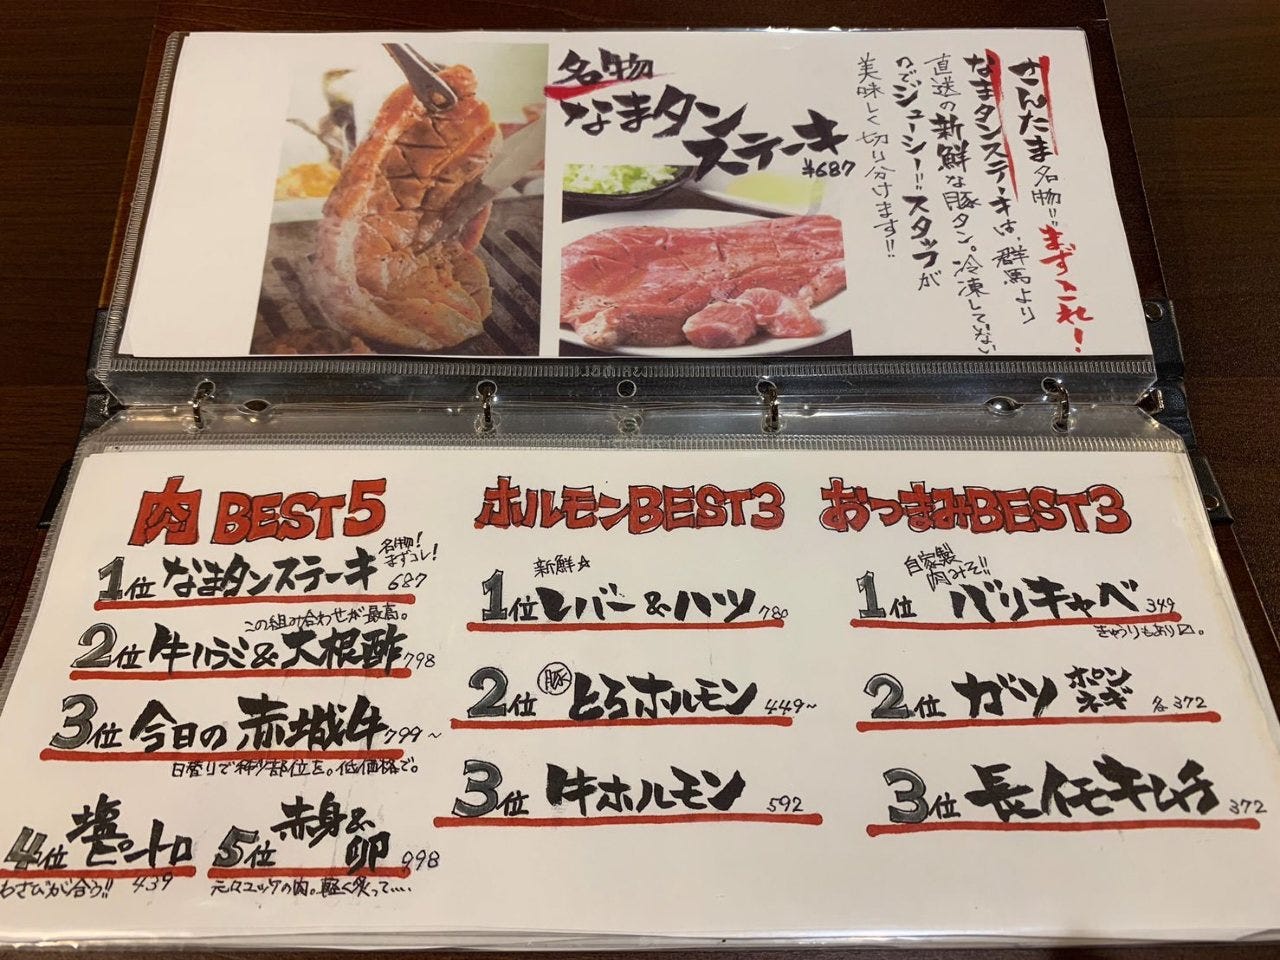 名物
なまタン
ステーキ
¥687
さんたま名物!! まずこれ!
なまタンステーキは、群馬より
直送の新鮮な豚タン。冷凍してない
のでジューシー!! スタッフが
美味しく切り分けます!!
肉 BEST5
1位 なまタンステーキ 687
名物!
まずコレ!
この組み合わせが最高。
2位 牛ハラミ&大根酢 798
3位 今日の赤城牛 799~
日替りで稀少部位を。低価格で。
4位 塩ピートロ 439
わさびが合う!!
5位 赤身&卵 998
元々ユッケの肉。軽く炙って....
ホルモンBEST3
新鮮☆
1位 レバー&ハツ 780
2位 豚 とろホルモン 449~
3位 牛ホルモン 592
おつまみBEST3
自家製
肉みそ!!
1位 バリキャベ 349
きゅうりもあり〼。
2位 ガツ ポン ネギ 各372
3位 長イモキムチ 372